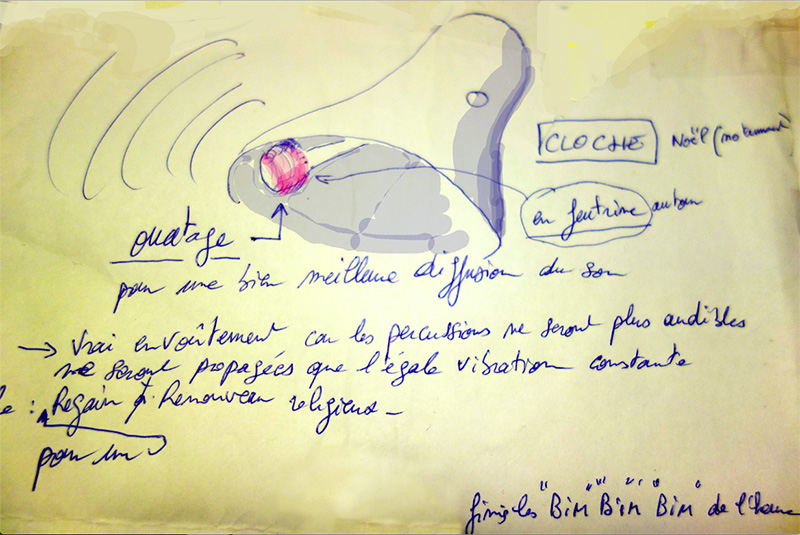 CLOCHE Noël (notamment)
en feutrine autour
ouatage
pour une bien meilleure diffusion du son
→ Vrai envoûtement car les percussions ne seront plus audibles
ne seront propagées que l'égale vibration constante
Regain & Renouveau religieux -
pour un
finis les "BIM" "BIM" BIM" de l'